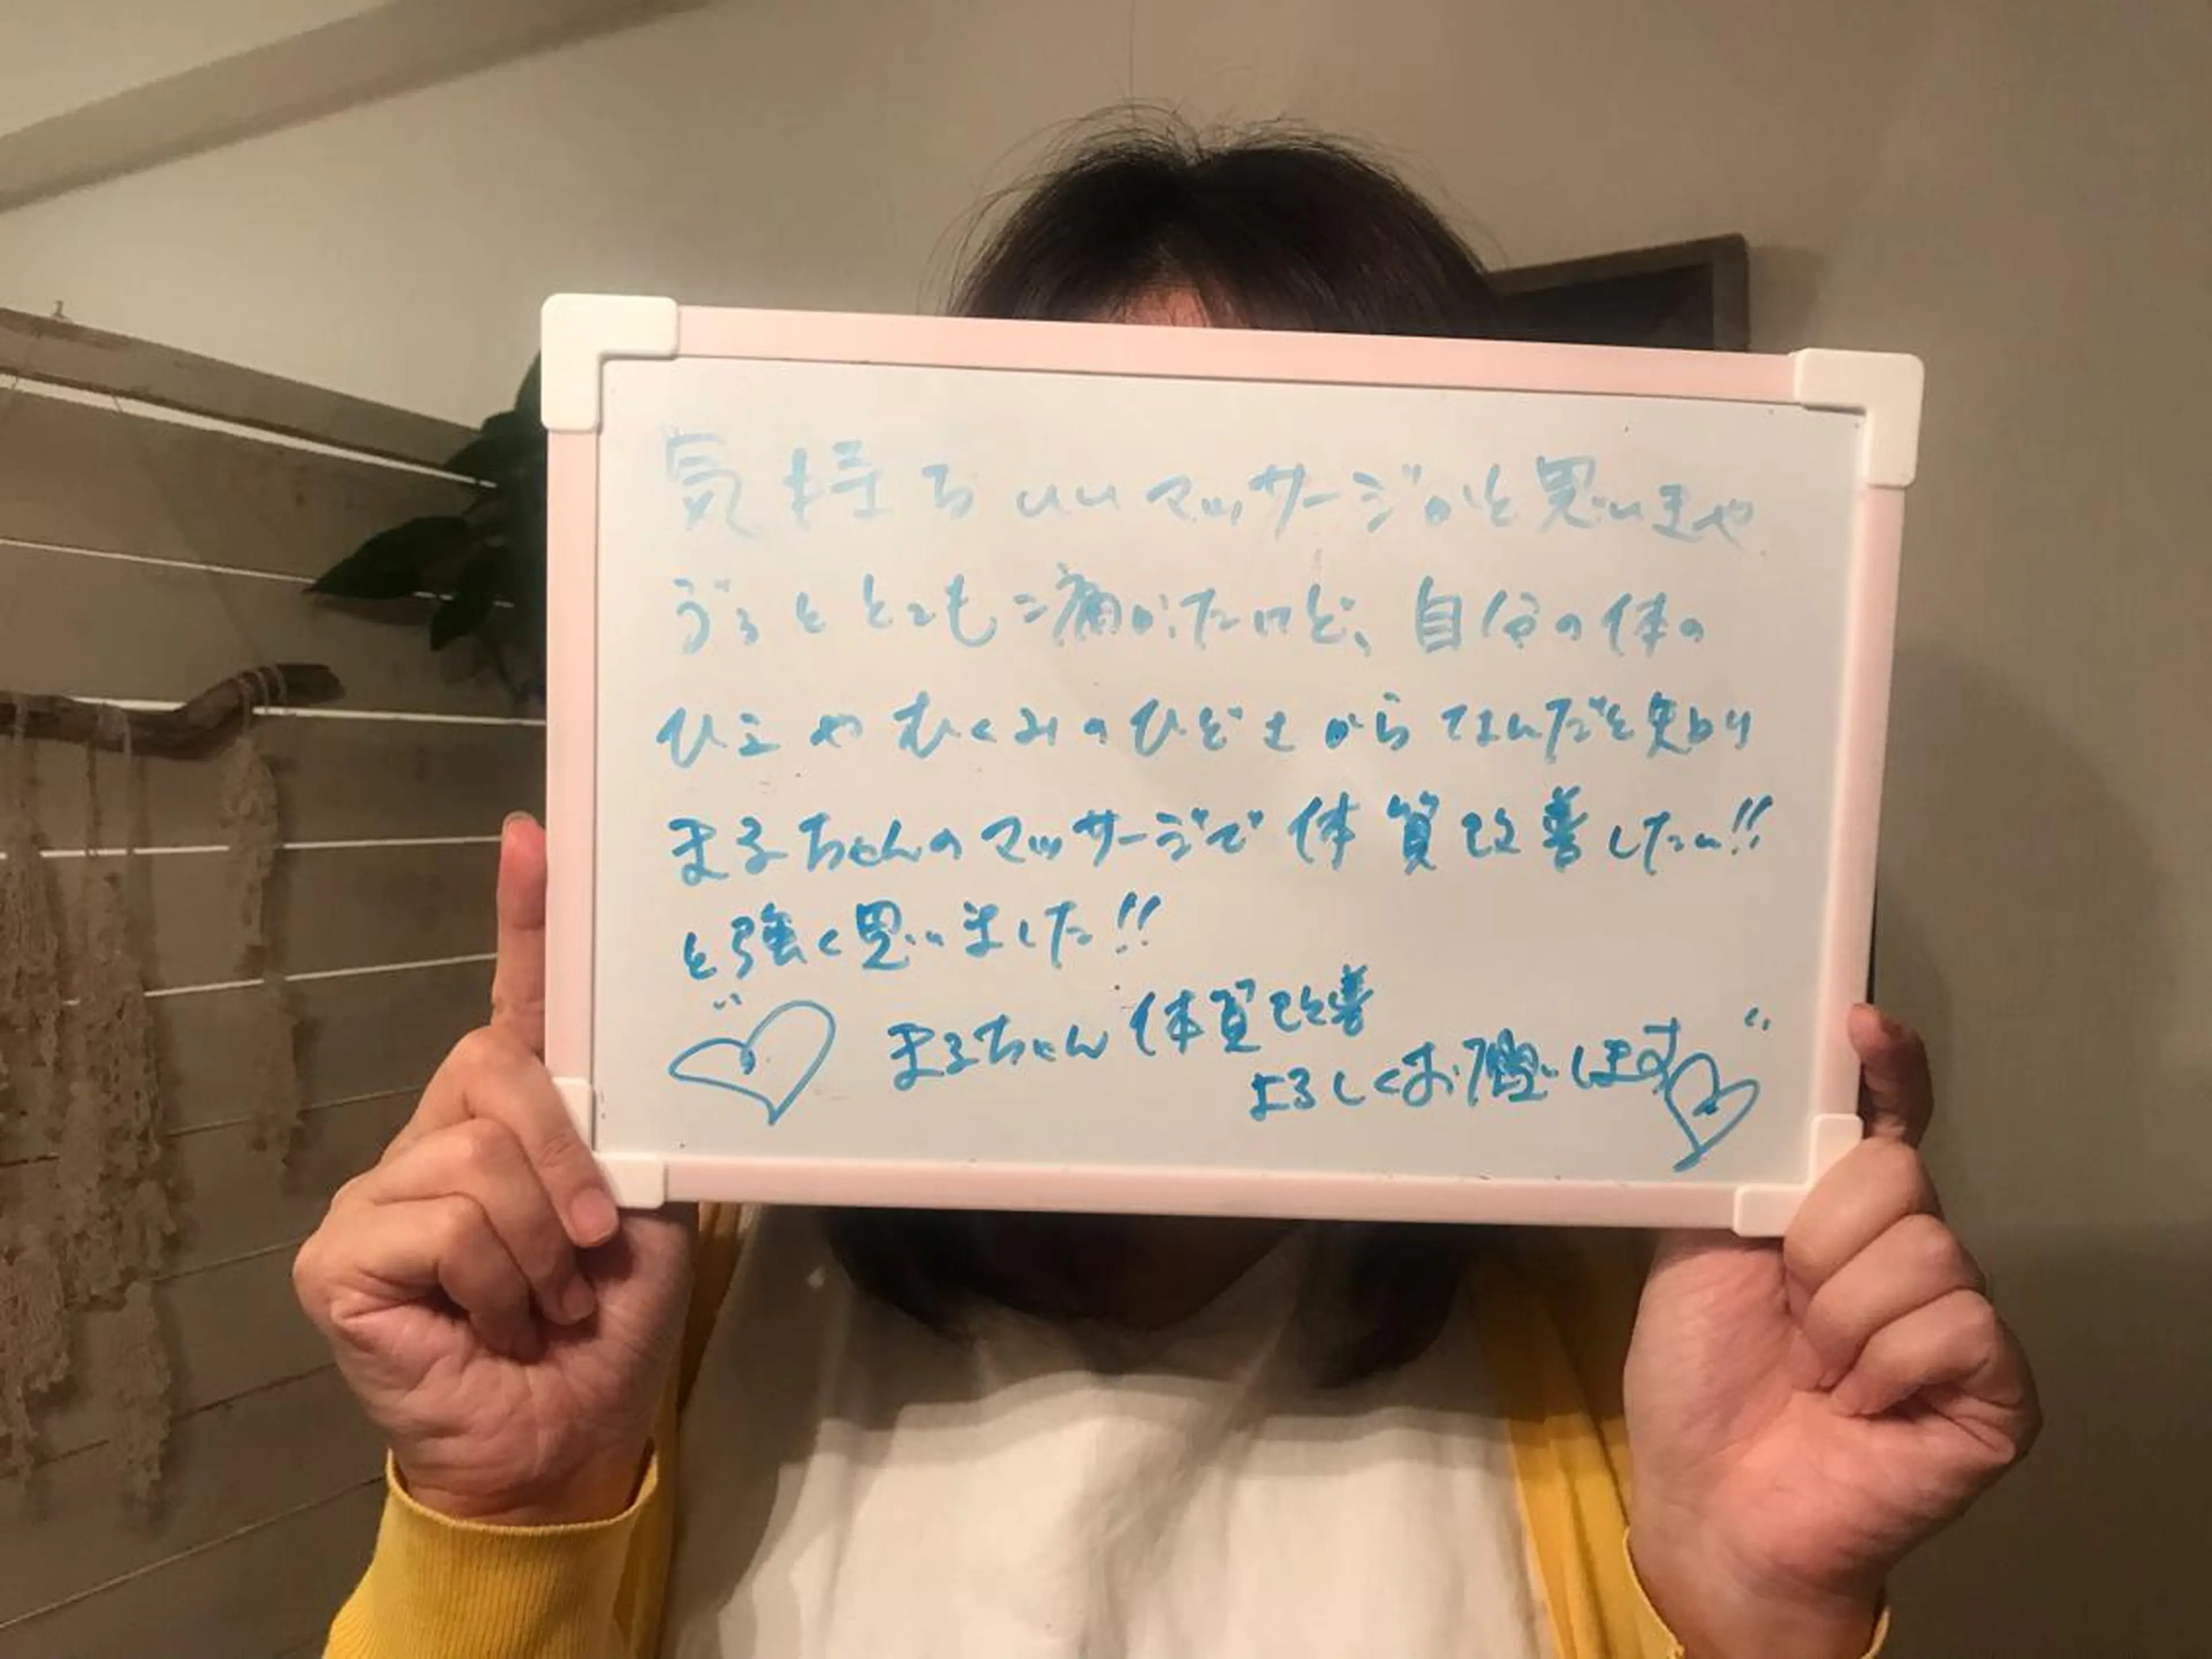 気持ちいいマッサージかと思いきや
ずっととっても痛かったけど、自分の体の
ひえやむくみのひどさからなんだと知り
まるちゃんのマッサージで体質改善したい!!
と強く思いました!!
まるちゃん体質改善
よろしくお願いします